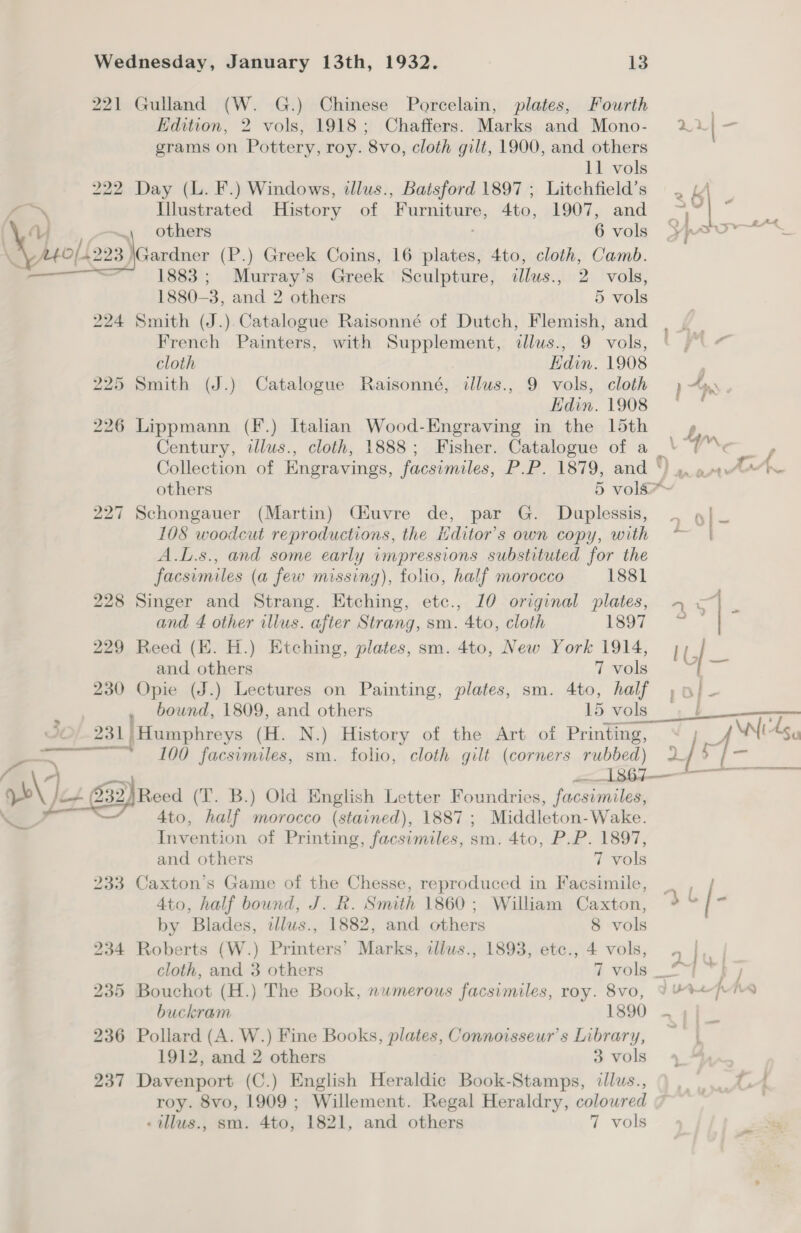 Wednesday, January 13th, 1932. 13
221 Gulland (W. G.) Chinese Porcelain, plates, Fourth
Edition, 2 vols, 1918; Chaffers. Marks and Mono-
grams on Pottery, roy. 8vo, cloth gilt, 1900, and others
11 vols
222 Day (L. F.) Windows, illus., Batsford 1897; Litchfield's
Illustrated History of Furniture, 4to, 1907, and
others 6 vols
223 Gardner (P.) Greek Coins, 16 plates, 4to, cloth, Camb.
1883; Murray's Greek Sculpture, illus., 2 vols,
1880-3, and 2 others 5 vols
224 Smith (J.) Catalogue Raisonné of Dutch, Flemish, and
French Painters, with Supplement, illus., 9 vols,
cloth Edin. 1908
225 Smith (J.) Catalogue Raisonné, illus., 9 vols, cloth
Edin. 1908
226 Lippmann (F.) Italian Wood-Engraving in the 15th
Century, illus., cloth, 1888; Fisher. Catalogue of a
Collection of Engravings, facsimiles, P.P. 1879, and
others 5 vols
227 Schongauer (Martin) Œuvre de, par G. Duplessis,
108 woodcut reproductions, the Editor's own copy, with
A.L.s., and some early impressions substituted for the
facsimiles (a few missing), folio, half morocco 1881
228 Singer and Strang. Etching, etc., 10 original plates,
and 4 other illus. after Strang, sm. 4to, cloth 1897
229 Reed (E. H.) Etching, plates, sm. 4to, New York 1914,
and others 7 vols
230 Opie (J.) Lectures on Painting, plates, sm. 4to, half
bound, 1809, and others 15 vols
231 Humphreys (H. N.) History of the Art of Printing,
100 facsimiles, sm. folio, cloth gilt (corners rubbed)
1867
232 Reed (T. B.) Old English Letter Foundries, facsimiles,
4to, half morocco (stained), 1887; Middleton-Wake.
Invention of Printing, facsimiles, sm. 4to, P.P. 1897,
and others 7 vols
233 Caxton's Game of the Chesse, reproduced in Facsimile,
4to, half bound, J. R. Smith 1860; William Caxton,
by Blades, illus., 1882, and others 8 vols
234 Roberts (W.) Printers' Marks, illus., 1893, etc., 4 vols,
cloth, and 3 others 7 vols
235 Bouchot (H.) The Book, numerous facsimiles, roy. 8vo,
buckram 1890
236 Pollard (A. W.) Fine Books, plates, Connoisseur's Library,
1912, and 2 others 3 vols
237 Davenport (C.) English Heraldic Book-Stamps, illus.,
roy. 8vo, 1909; Willement. Regal Heraldry, coloured
illus., sm. 4to, 1821, and others 7 vols